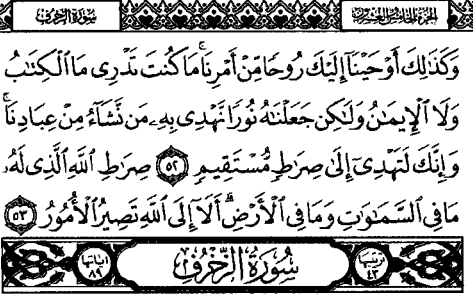 الجزء الخامس والعشرون
سورة الزخرف
وَكَذَٰلِكَ أَوْحَيْنَآ إِلَيْكَ رُوحًا مِّنْ أَمْرِنَا ۚ مَا كُنتَ تَدْرِى مَا ٱلْكِتَٰبُ
وَلَا ٱلْإِيمَٰنُ وَلَٰكِن جَعَلْنَٰهُ نُورًا نَّهْدِى بِهِۦ مَن نَّشَآءُ مِنْ عِبَادِنَا ۚ
وَإِنَّكَ لَتَهْدِىٓ إِلَىٰ صِرَٰطٍ مُّسْتَقِيمٍ ٥٢ صِرَٰطِ ٱللَّهِ ٱلَّذِى لَهُۥ
مَا فِى ٱلسَّمَٰوَٰتِ وَمَا فِى ٱلْأَرْضِ ۗ أَلَآ إِلَى ٱللَّهِ تَصِيرُ ٱلْأُمُورُ ٥٣
ترتيبها ٤٣ سُورَةُ الزُّخْرُفِ آياتها ٨٩